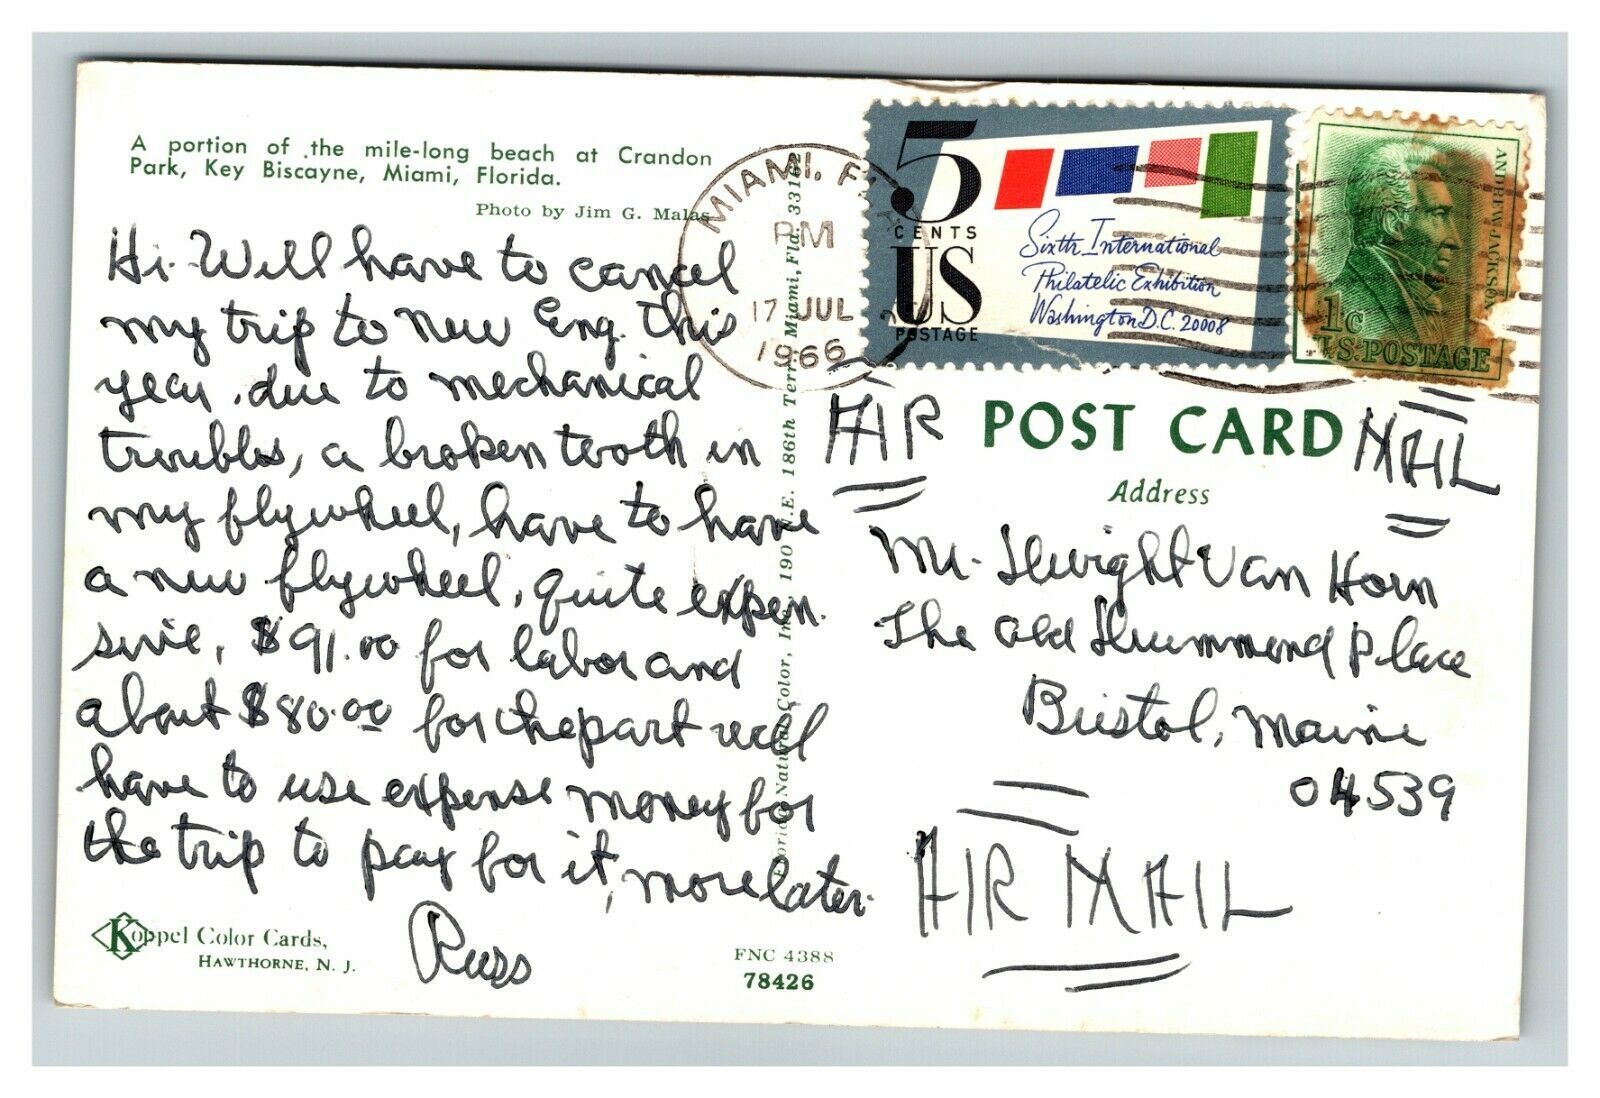 A portion of the mile-long beach at Crandon
Park, Key Biscayne, Miami, Florida.
Photo by Jim G. Malas
Hi. Will have to cancel
my trip to new Eng. this
year, due to mechanical
troubles, a broken tooth in
my flywheel, have to have
a new flywheel, quite expen.
sive, $91.00 for labor and
about $80.00 for the part will
have to use expense money for
the trip to pay for it, more later.
Russ
Koppel Color Cards,
HAWTHORNE, N. J.
FNC 4388
78426
Florida Natural Color, Inc., 190 N.E. 186th Terr. Miami, Fla. 3316
MIAMI, FLA.
PM
17 JUL
1966
5
CENTS
US
POSTAGE
Sixth International
Philatelic Exhibition
Washington D.C. 20008
ANDREW JACKSON
1c
U.S. POSTAGE
AIR POST CARD MAIL
Address
Mr. Dwight Van Horn
The Old Drummond Place
Bristol, Maine
04539
AIR MAIL